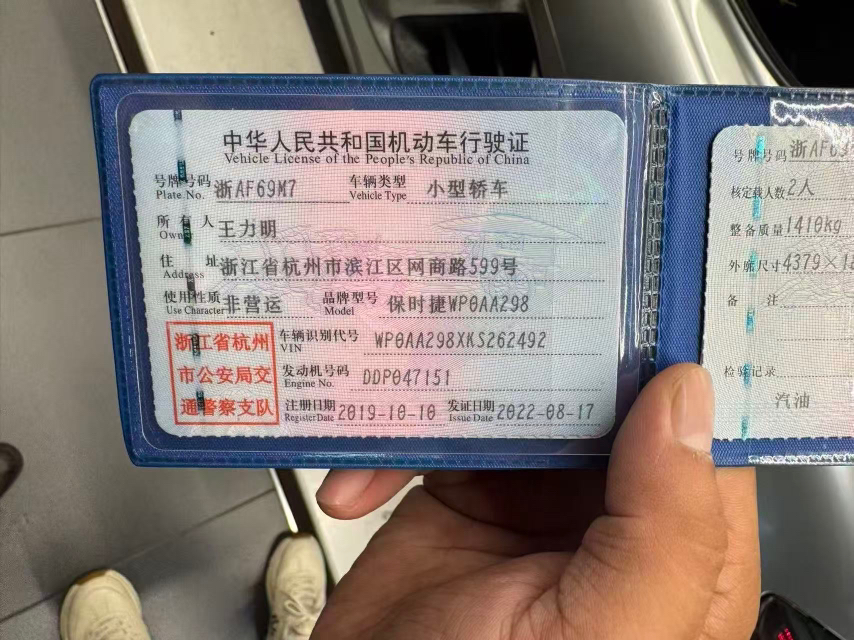 中华人民共和国机动车行驶证
Vehicle License of the People's Republic of China
号牌号码 浙AF69M7 车辆类型 小型轿车
Plate No. Vehicle Type
所有人 王力明
Owner
住址 浙江省杭州市滨江区网商路599号
Address
使用性质 非营运 品牌型号 保时捷WP0AA298
Use Character Model
浙江省杭州
市公安局交
通警察支队
车辆识别代号 WP0AA298XKS262492
VIN
发动机号码 DDP047151
Engine No.
注册日期 2019-10-10 发证日期 2022-08-17
Register Date Issue Date
号牌号码 浙AF69
核定载人数 2人
整备质量 1410kg
外廓尺寸 4379×18
备注
检验记录
汽油